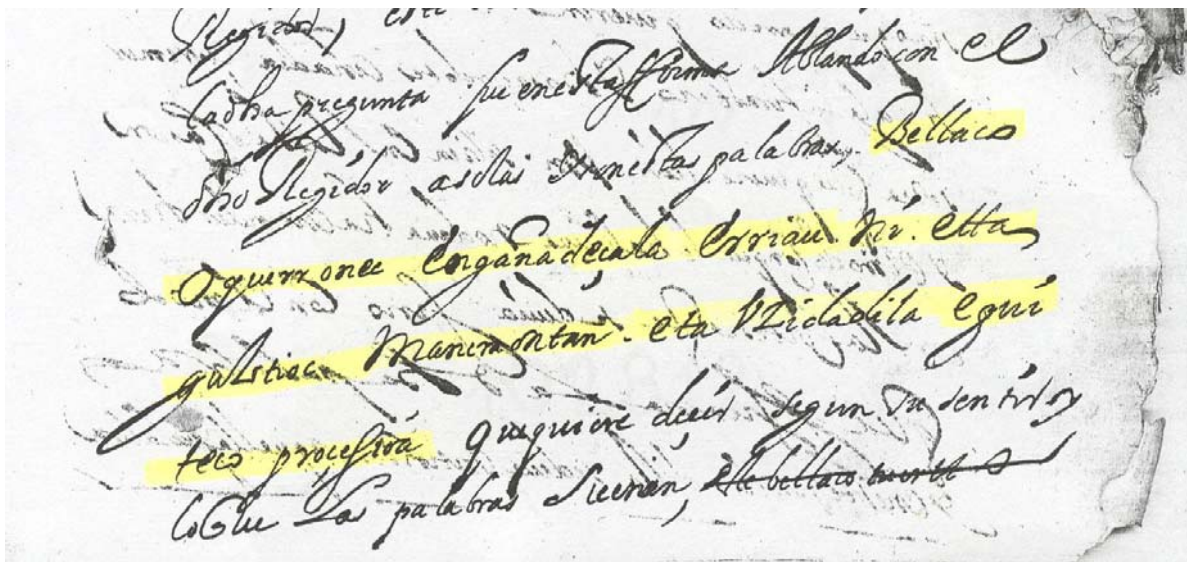 Regidor, este
la dha pregunta fue en esta fforma Ablando con el
dho Regidor asolas Con estas palabras, Bellaco
oquerronec Engaña deçala Erriau. Nic. etta
gustiac Manimontan. eta Vzicladila Egui
teco proçesioā quequiere deçir segun su sentido y
lo que Las palabras suenan, este bellaco